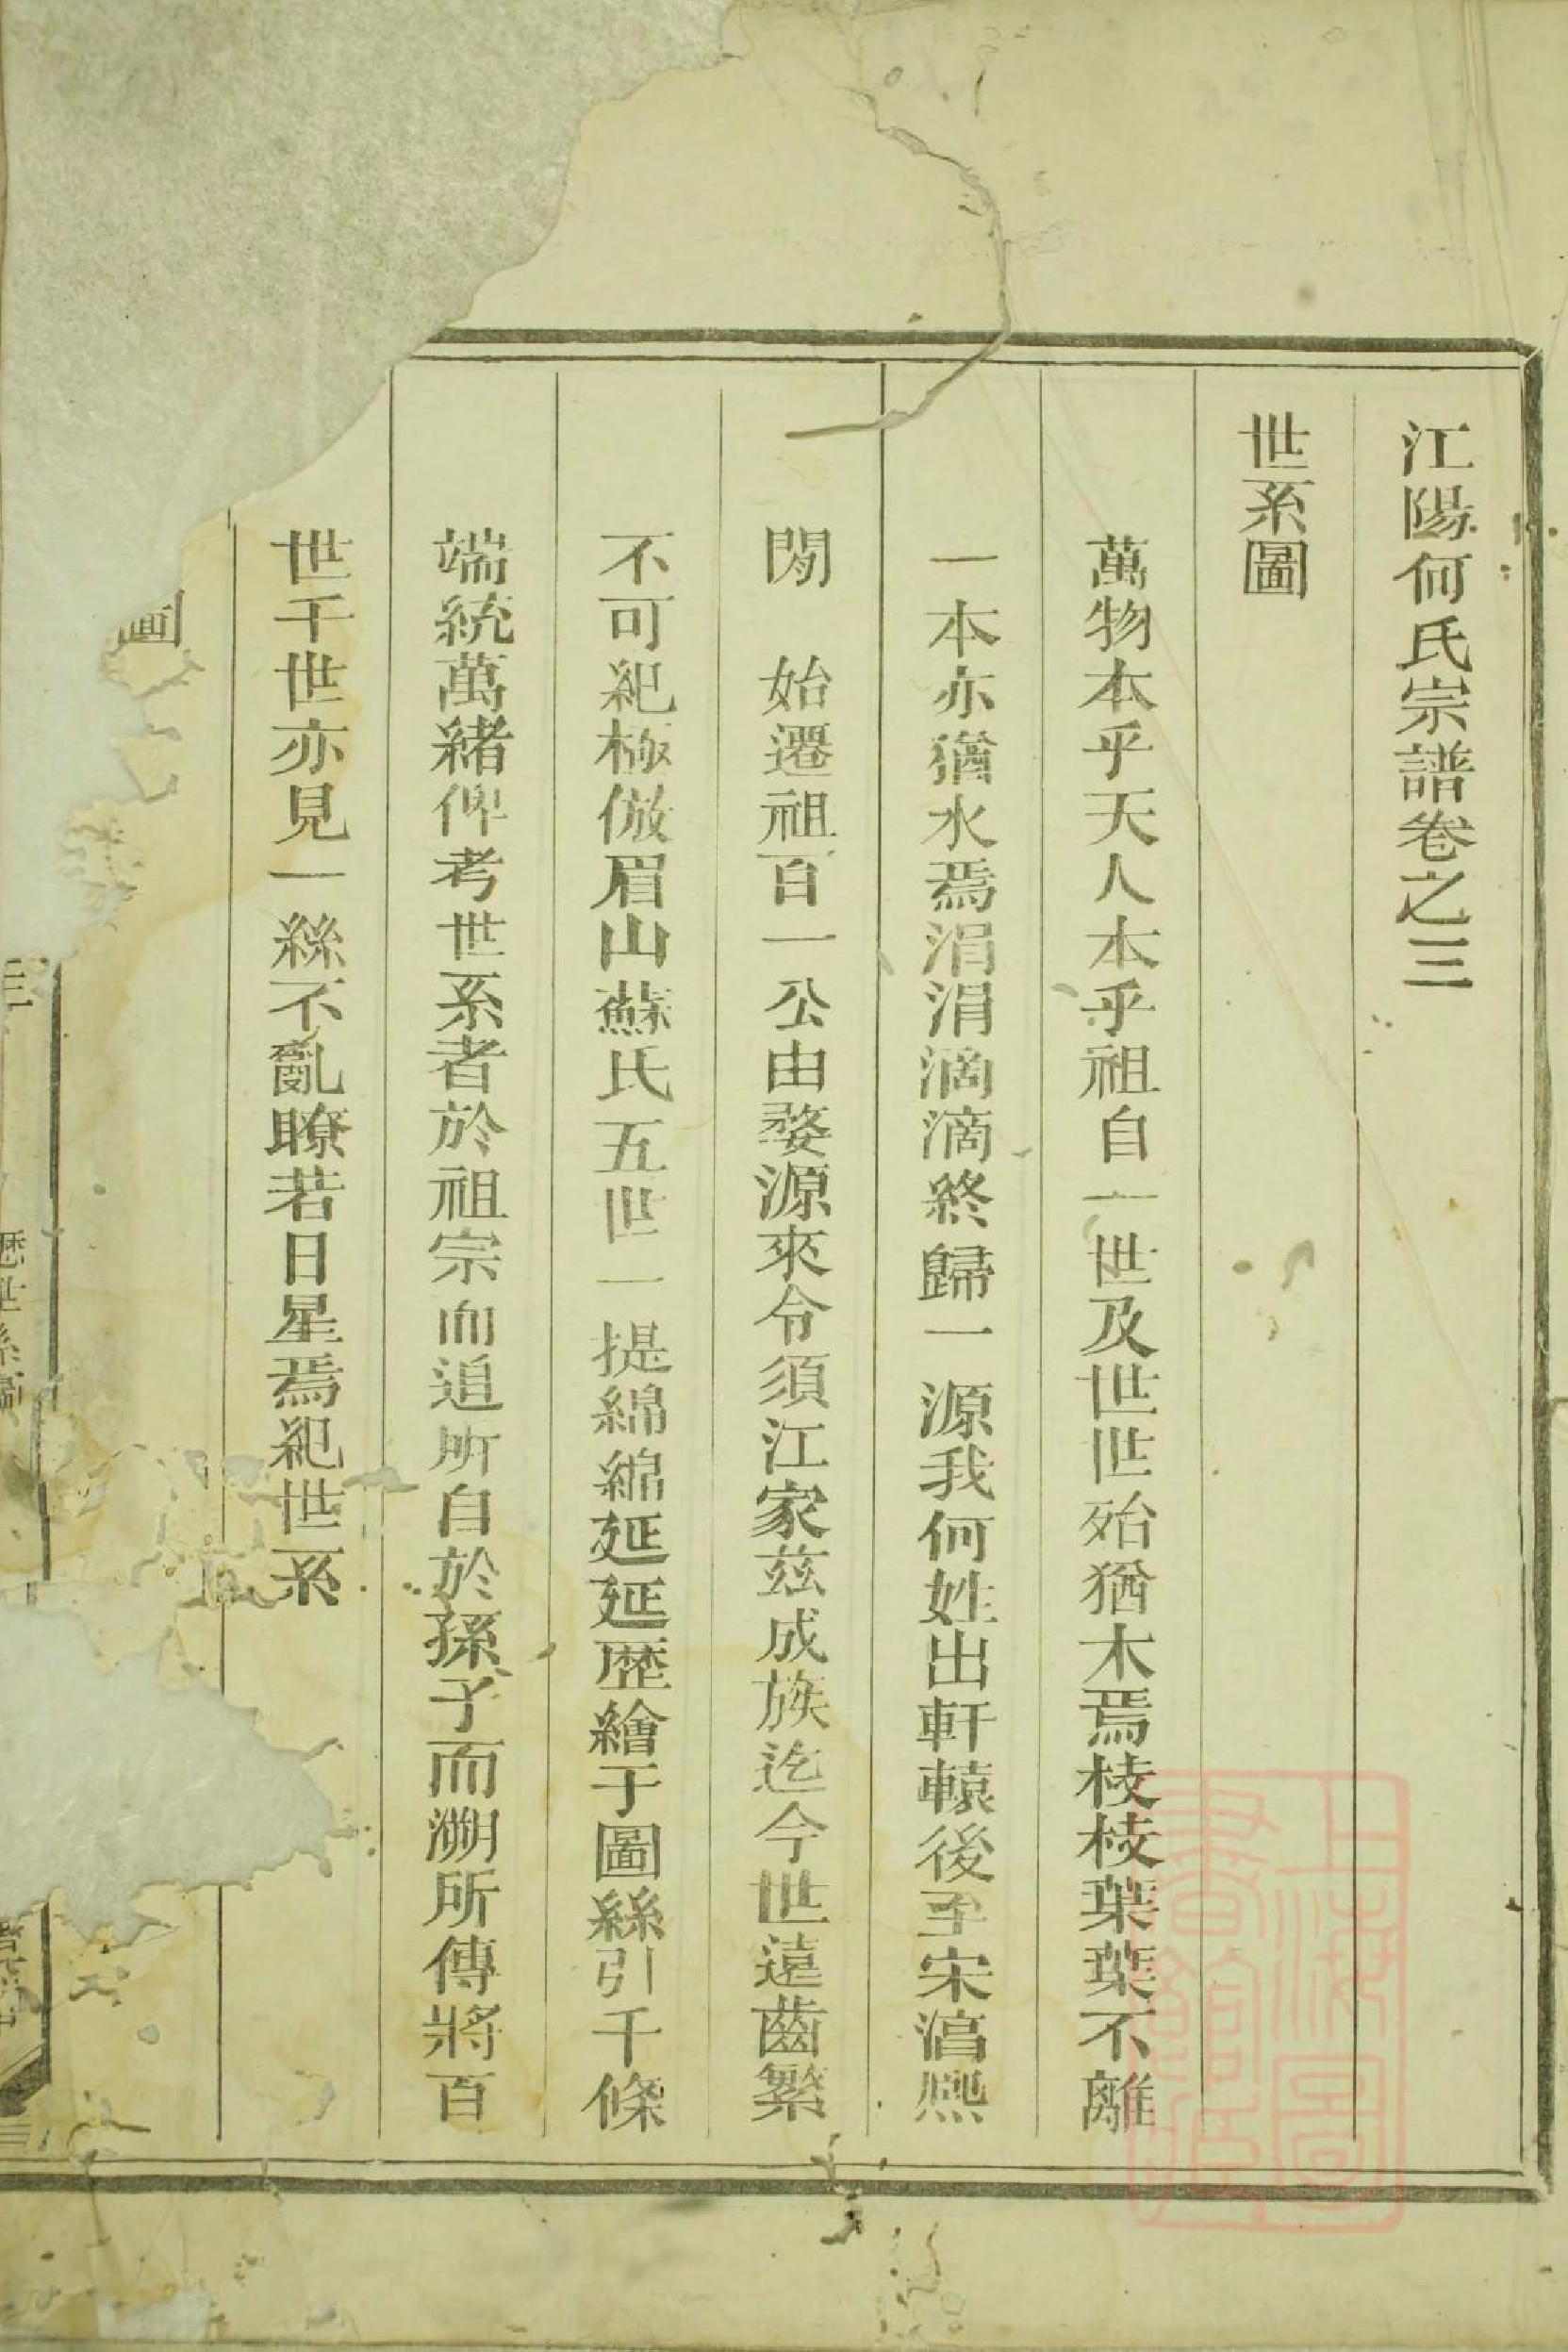 江陽何氏宗譜卷之三
世系圖
萬物本乎天人本乎祖自一世及世世殆猶木焉枝枝葉葉不離
一本亦猶水焉涓涓滴滴終歸一源我何姓出軒轅後至宋湻熙
閒　始遷祖百一公由婺源來令須江家茲成族迄今世遠齒繁
不可紀極倣眉山蘇氏五世一提綿綿延延歷繪于圖絲引千條
端統萬緒俾考世系者於祖宗而追所自於孫子而溯所傳將百
世千世亦見一絲不亂瞭若日星焉紀世系
圖
歷世系圖
上海圖
書館藏